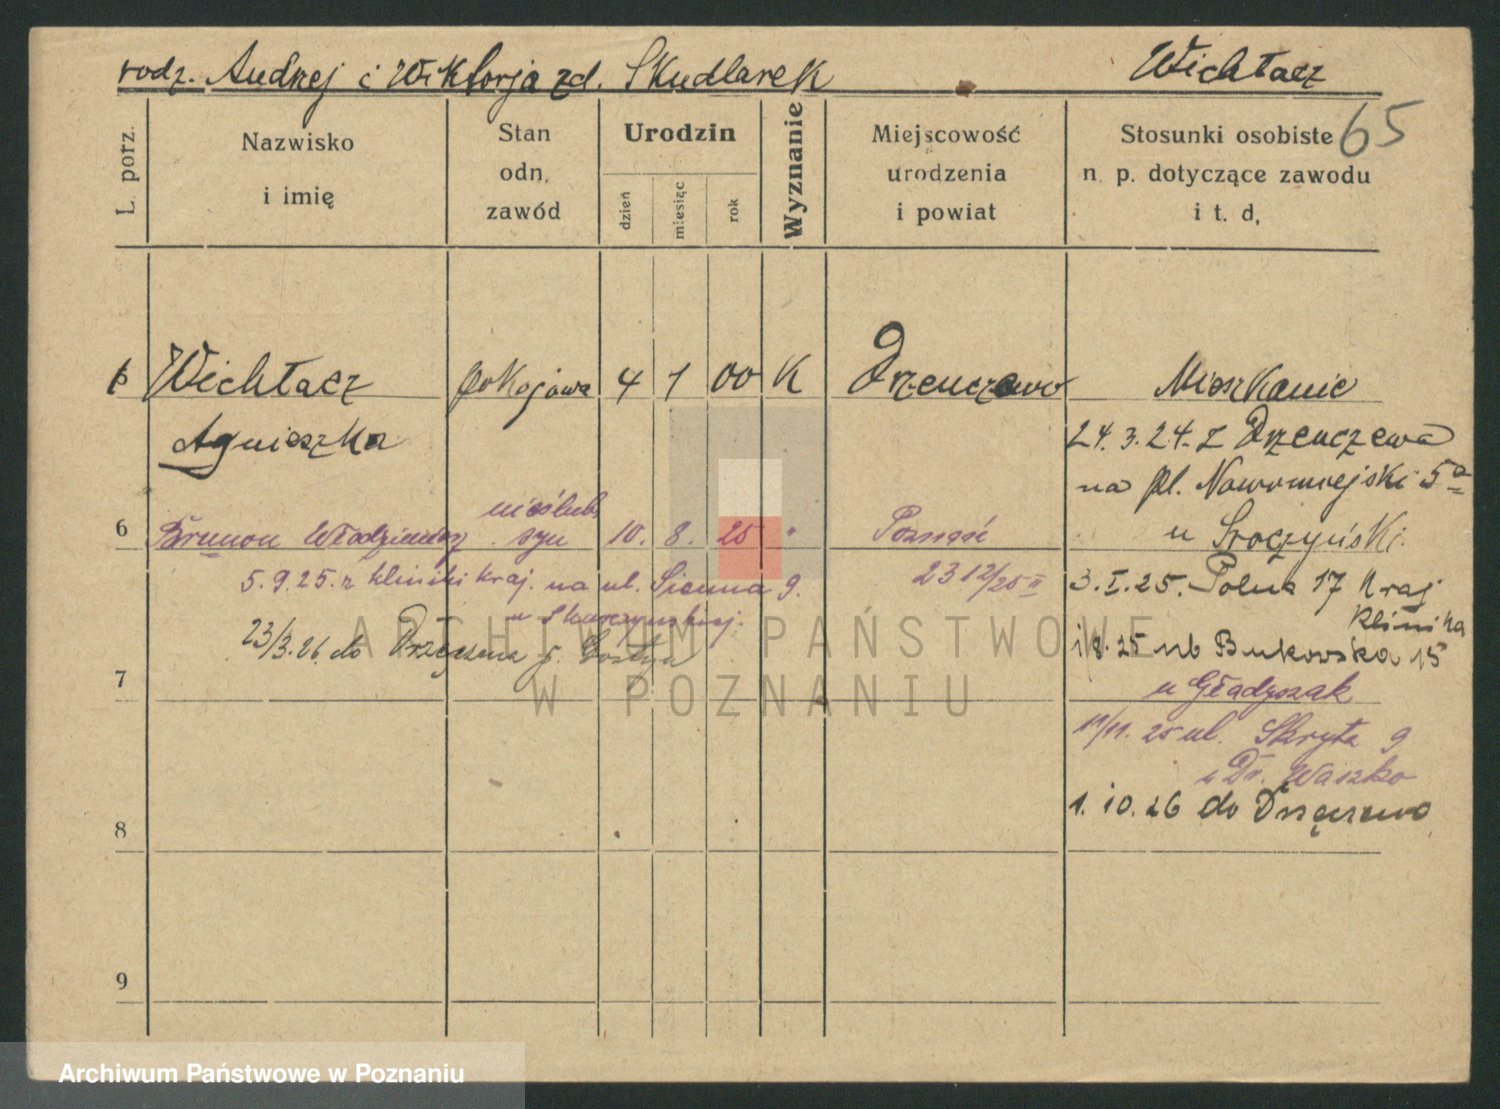 rodz. Andrzej i Wiktorja zd. Skudlarek
Wichłacz
65
L. porz.
Nazwisko
i imię
Stan
odn.
zawód
Urodzin
dzień
miesiąc
rok
Wyznanie
Miejscowość
urodzenia
i powiat
Stosunki osobiste
n. p. dotyczące zawodu
i t. d.
Wichłacz pokojowa 4 1 00 K Drzenczewo
Agnieszka
Mieszkanie
24.3.24. z Drzenczewa
na pl. Nowomiejski 5a
u Sroczyński.
3.I.25. Polna 17 Kraj
klinika
1/8.25 Bukowska 15
u Gładyszak
11/11. 25 ul. Skryta 9
Dr. Waszko
1.10.26 do Drzęczewo
nieślub.
6 Brunon Włodzimierz syn 10. 8. 25 " Poznań
5.9.25. z kliniki kraj. na ul. Sienna 9.
23 12/25 II
23/3.26. do
7
8
9
ARCHIWUM PAŃSTWOWE
W POZNANIU
Archiwum Państwowe w Poznaniu